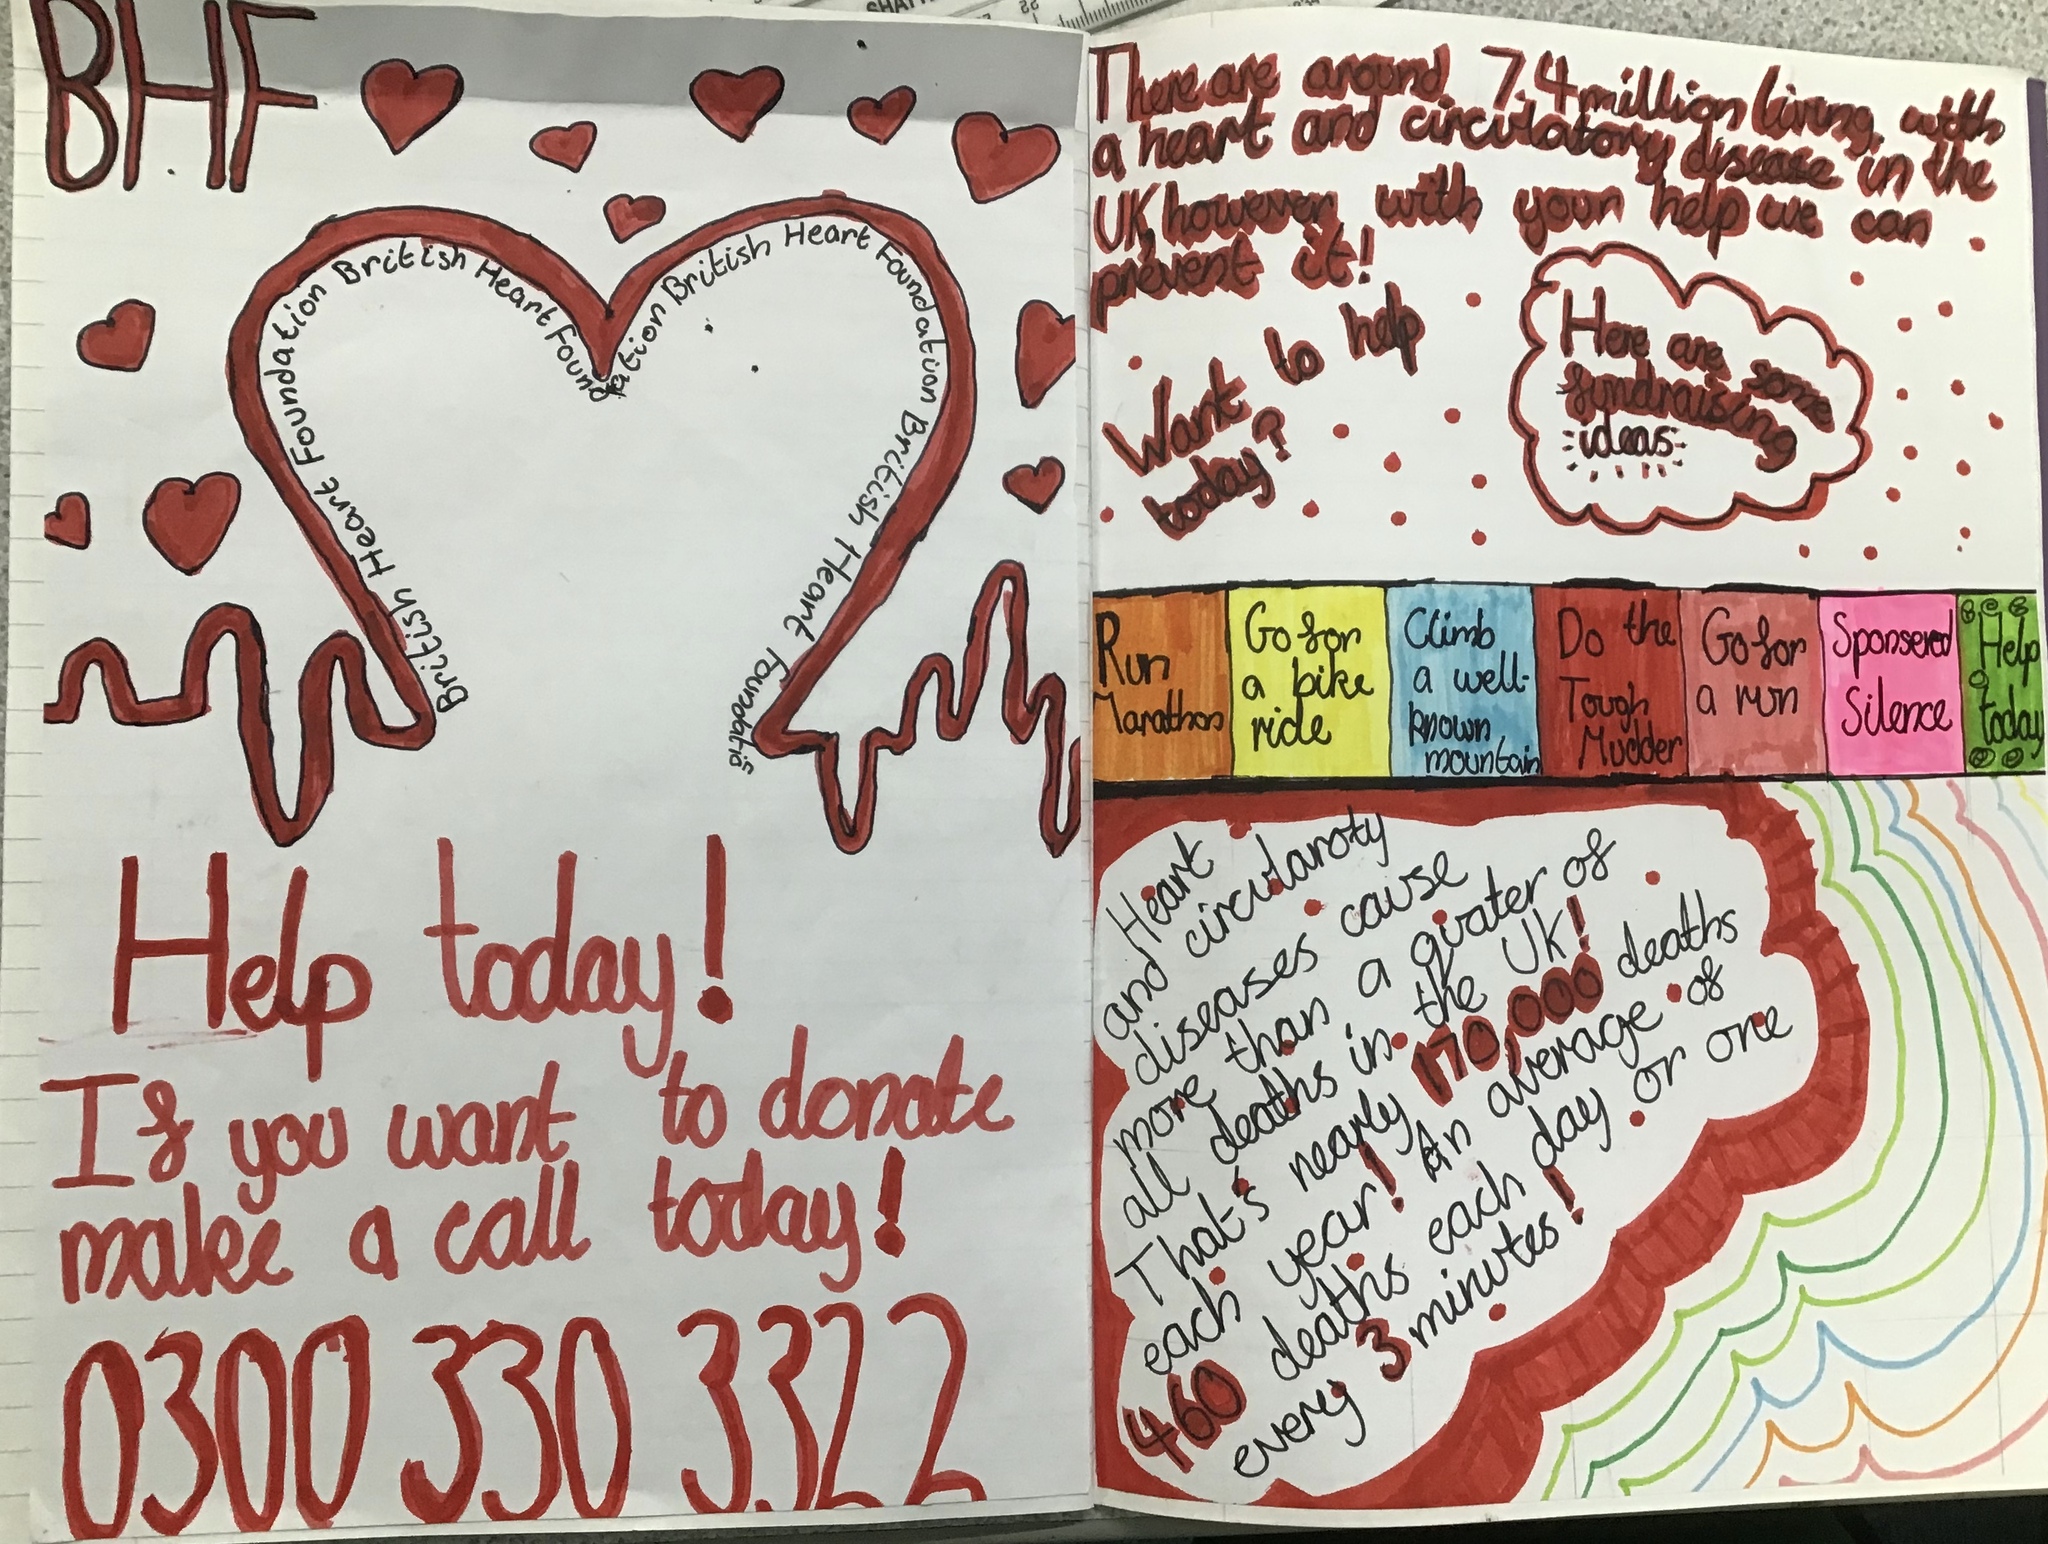 BHF
British Heart Foundation British Heart Foundation British Heart Foundation British Heart Foundatio
Help today!
If you want to donate
make a call today!
0300 330 3322
There are around 7.4 million living with
a heart and circulatory disease in the
UK, however with your help we can
prevent it!
Want to help
today?
Here are some
fundraising
ideas
Run
Marathon
Go for
a bike
ride
Climb
a well-
known
mountain
Do the
Tough
Mudder
Go for
a run
Sponsered
Silence
Help
today
Heart
and circularoty
diseases cause
more than a quater of
all deaths in the UK!
That's nearly 170,000 deaths
each year! An average of
460 deaths each day or one
every 3 minutes!